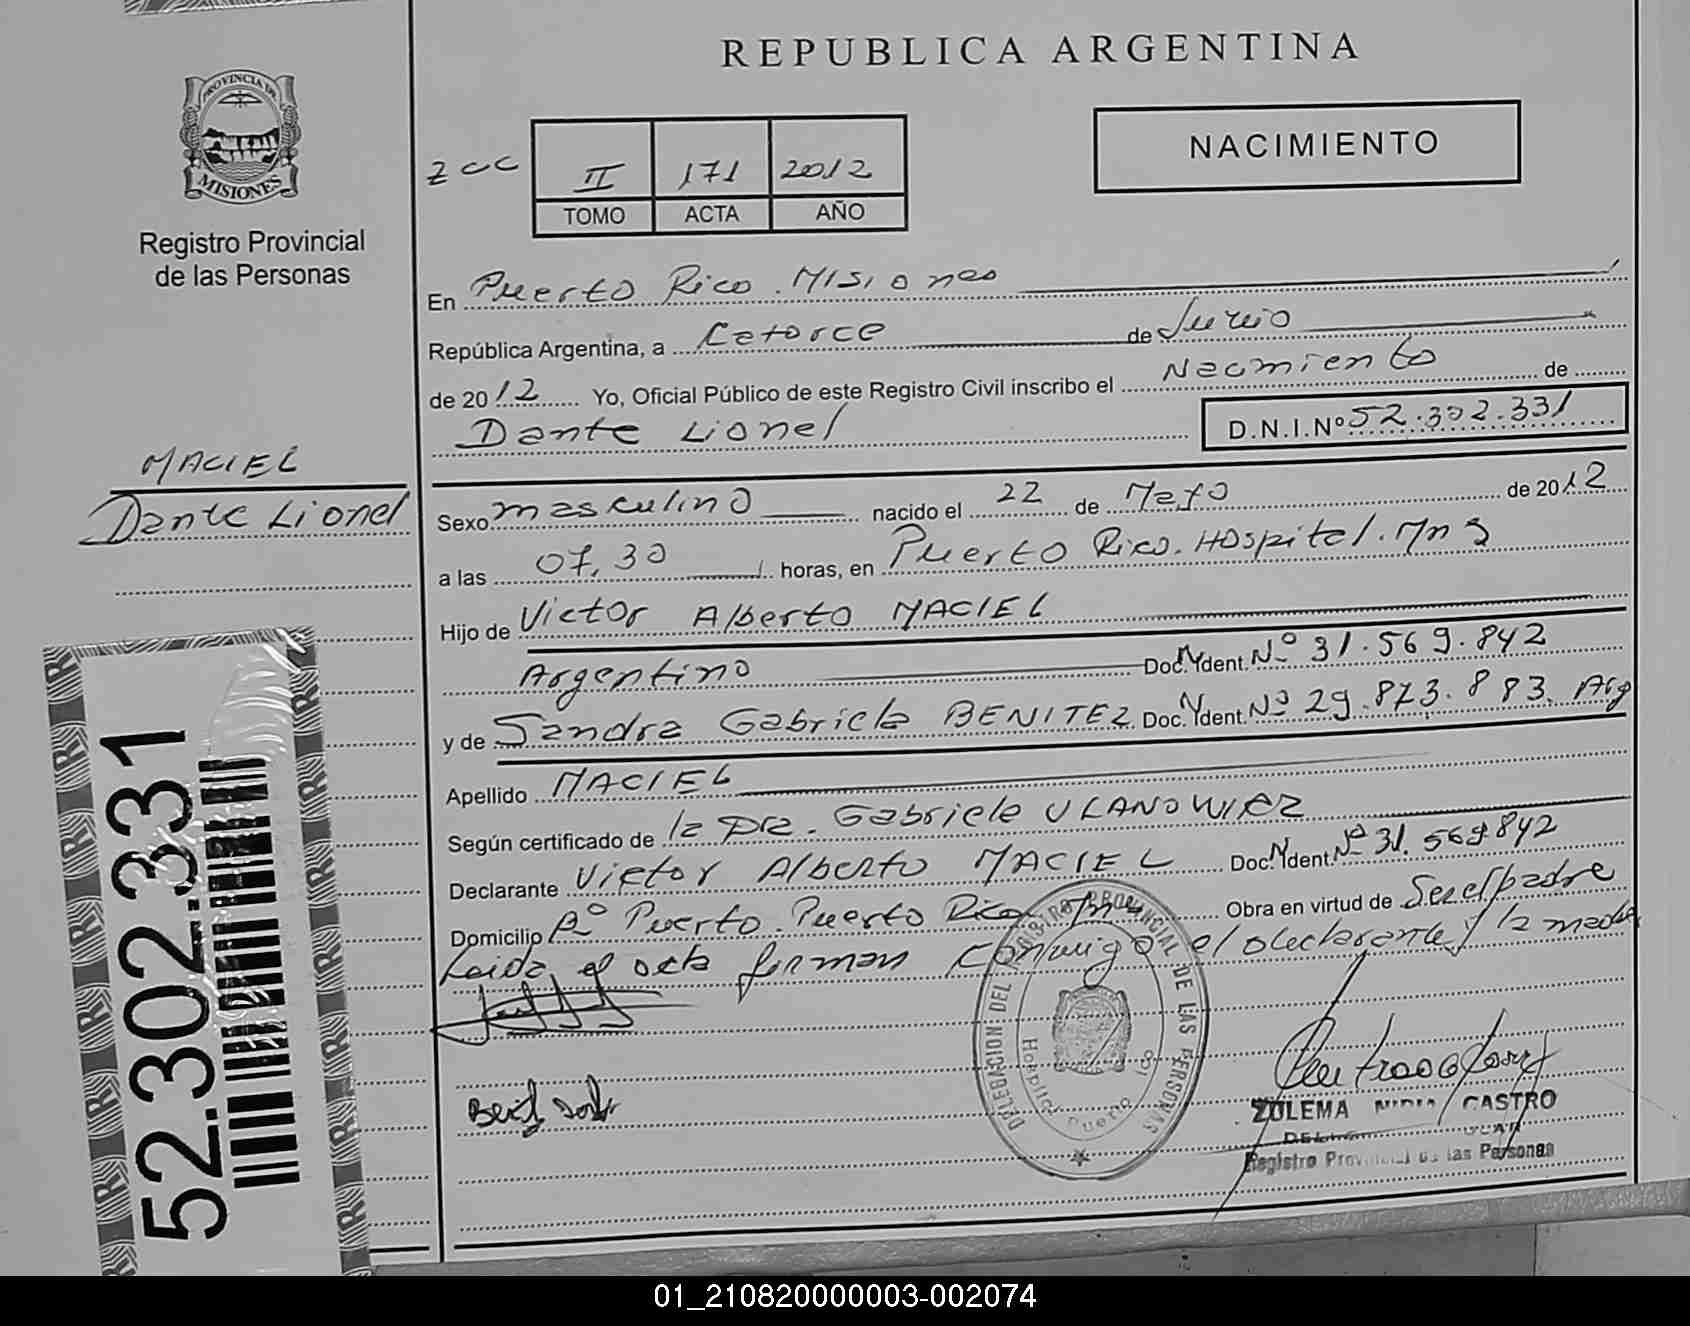 REPUBLICA ARGENTINA
PROVINCIA DE
MISIONES
Registro Provincial
de las Personas
NACIMIENTO
II 171 2012
TOMO ACTA AÑO
En Puerto Rico. Misiones
República Argentina, a Catorce de Junio
de 2012 Yo, Oficial Público de este Registro Civil inscribo el Nacimiento de
Dante Lionel D.N.I.Nº 52.302.331
MACIEL
Dante Lionel
Sexo masculino nacido el 22 de Mayo de 2012
a las 07,30 horas, en Puerto Rico. Hospital. Mns
Hijo de Victor Alberto MACIEL
Argentino Doc. Ident. Nº 31.569.842
y de Sandra Gabriela BENITEZ Doc. Ident. Nº 29.873.883. Arg
Apellido MACIEL
Según certificado de la Dra. Gabriela ULANOWIEZ
Declarante Victor Alberto MACIEL Doc. Ident. Nº 31.569842
Domicilio Bº Puerto. Puerto Rico Obra en virtud de Ser el padre
Leida el acta firman Conmigo el declarante y la madre
52.302.331
DELEGACION DEL REGISTRO PROVINCIAL DE LAS PERSONAS
Hospital
ZULEMA CASTRO
Registro Provincial de las Personas
01_210820000003-002074